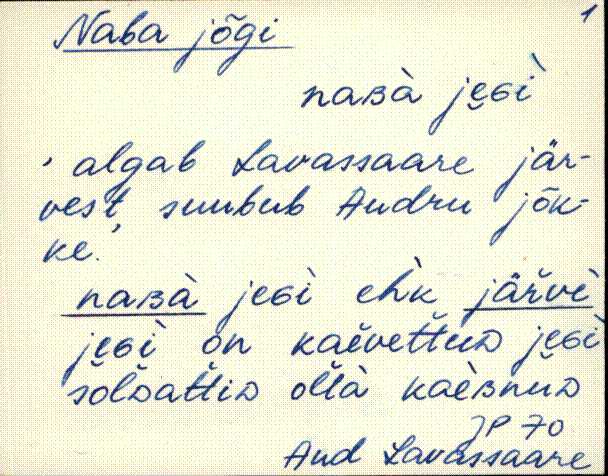 1
Naba jõgi
naʙà je̮ɢì
' algab Lavassaare jär-
vest, suubub Audru jõk-
ke.'
naʙà je̮ɢì ehk̀ järvè
je̮ɢì on kaèvettuᴅ je̮ɢì
soldattiᴅ ollà kaèʙnuᴅ
JP 70
Aud Lavassaare